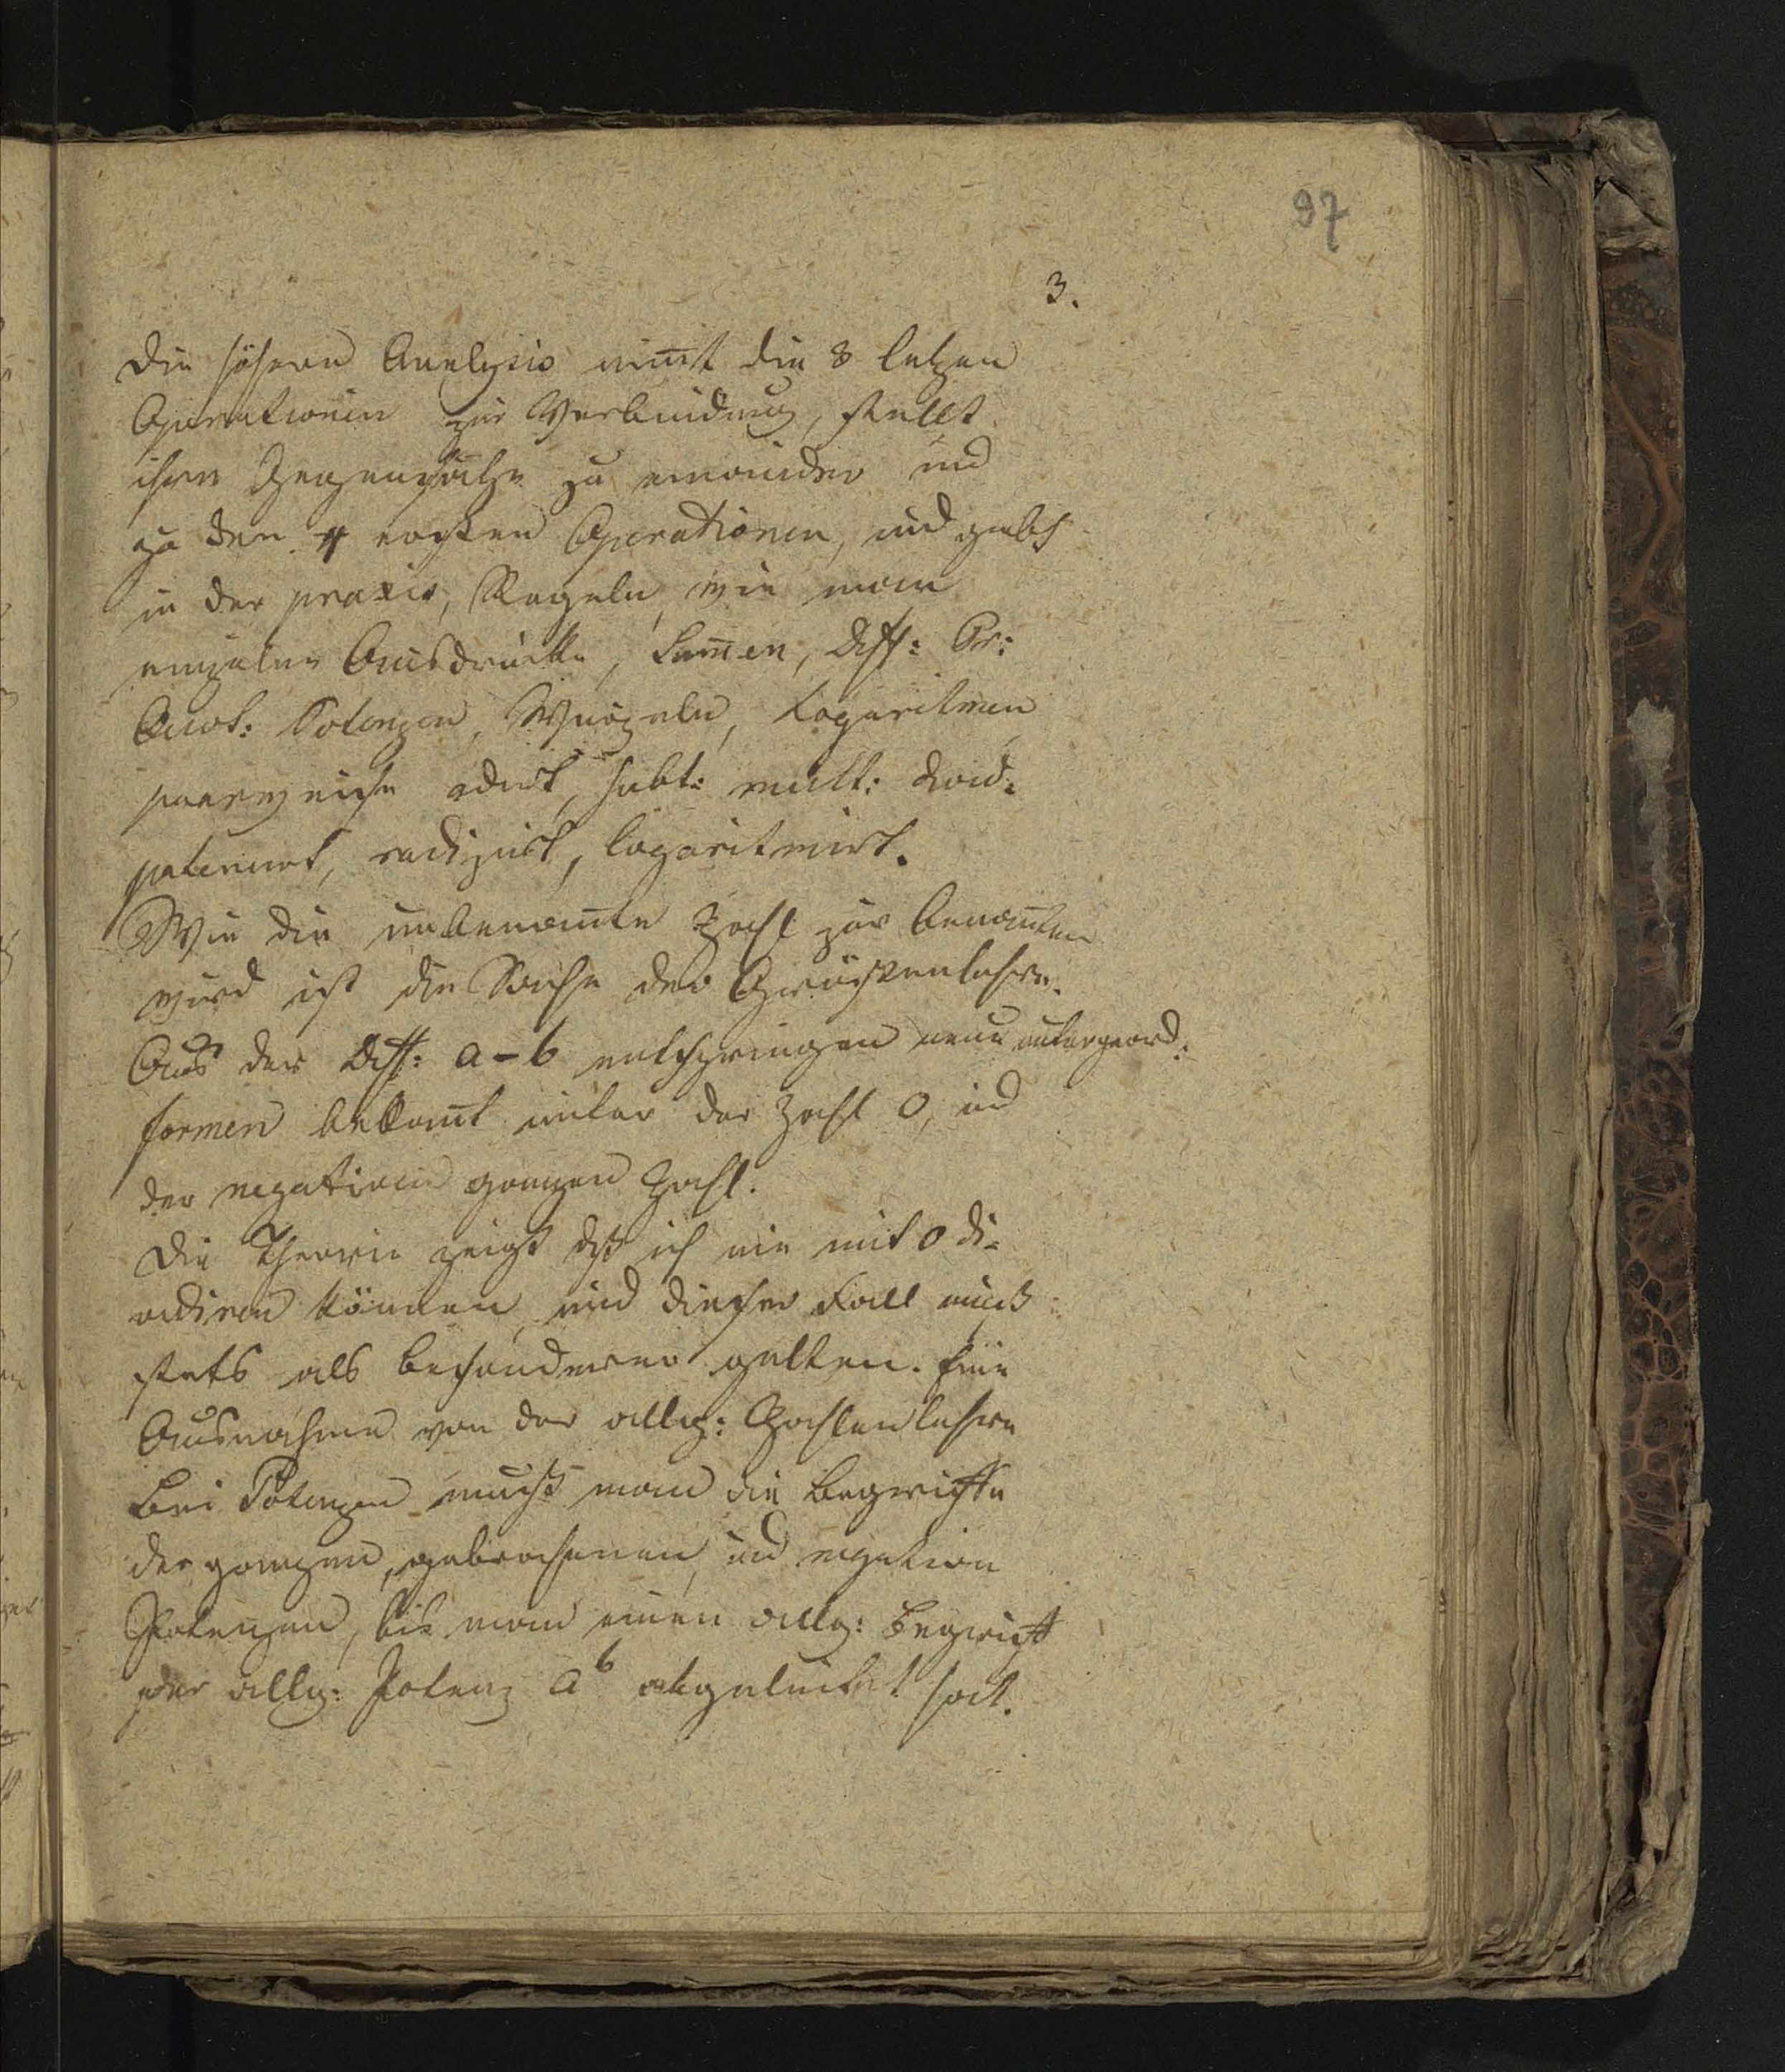 97
3.
Die höhern Analysis nim̅t die 3 letzen
Operationen zur Verbindung, stellt
ihre Gegensätze zu einander und
zu den 4 ersten Operationen, und giebt
in der praxis, Regeln, wie man
einzelne Ausdrücke, Sum̅en, Diff: Pr:
Quot: Potenzen, Wurzeln, Logaritmen
paarweise adirt, subt: mult: divid:
potenirt, radizirt, logaritmirt.
Wie die unbenam̅te Zahl zur benam̅ten
wird ist die Sache der Grössenlehre.
Aus der Diff: a-b entspringen neue untergeord:
formen bekan̅t unter der Zahl 0, und
der negativen ganzen Zahl.
Die Theorie zeigt dß ich nie mit 0 di-
vidiren können, und dieser Fall muß
stets als besonderer gelten. Eine
Ausnahme von der allg: Zahlenlehre
Bei Potenzen muß man die Begriffe
der ganzen, gebrochenen, und negative
Potenzen, bis man einen allg: Begriff
der allg: Potenz a^b abgeleitet hat.